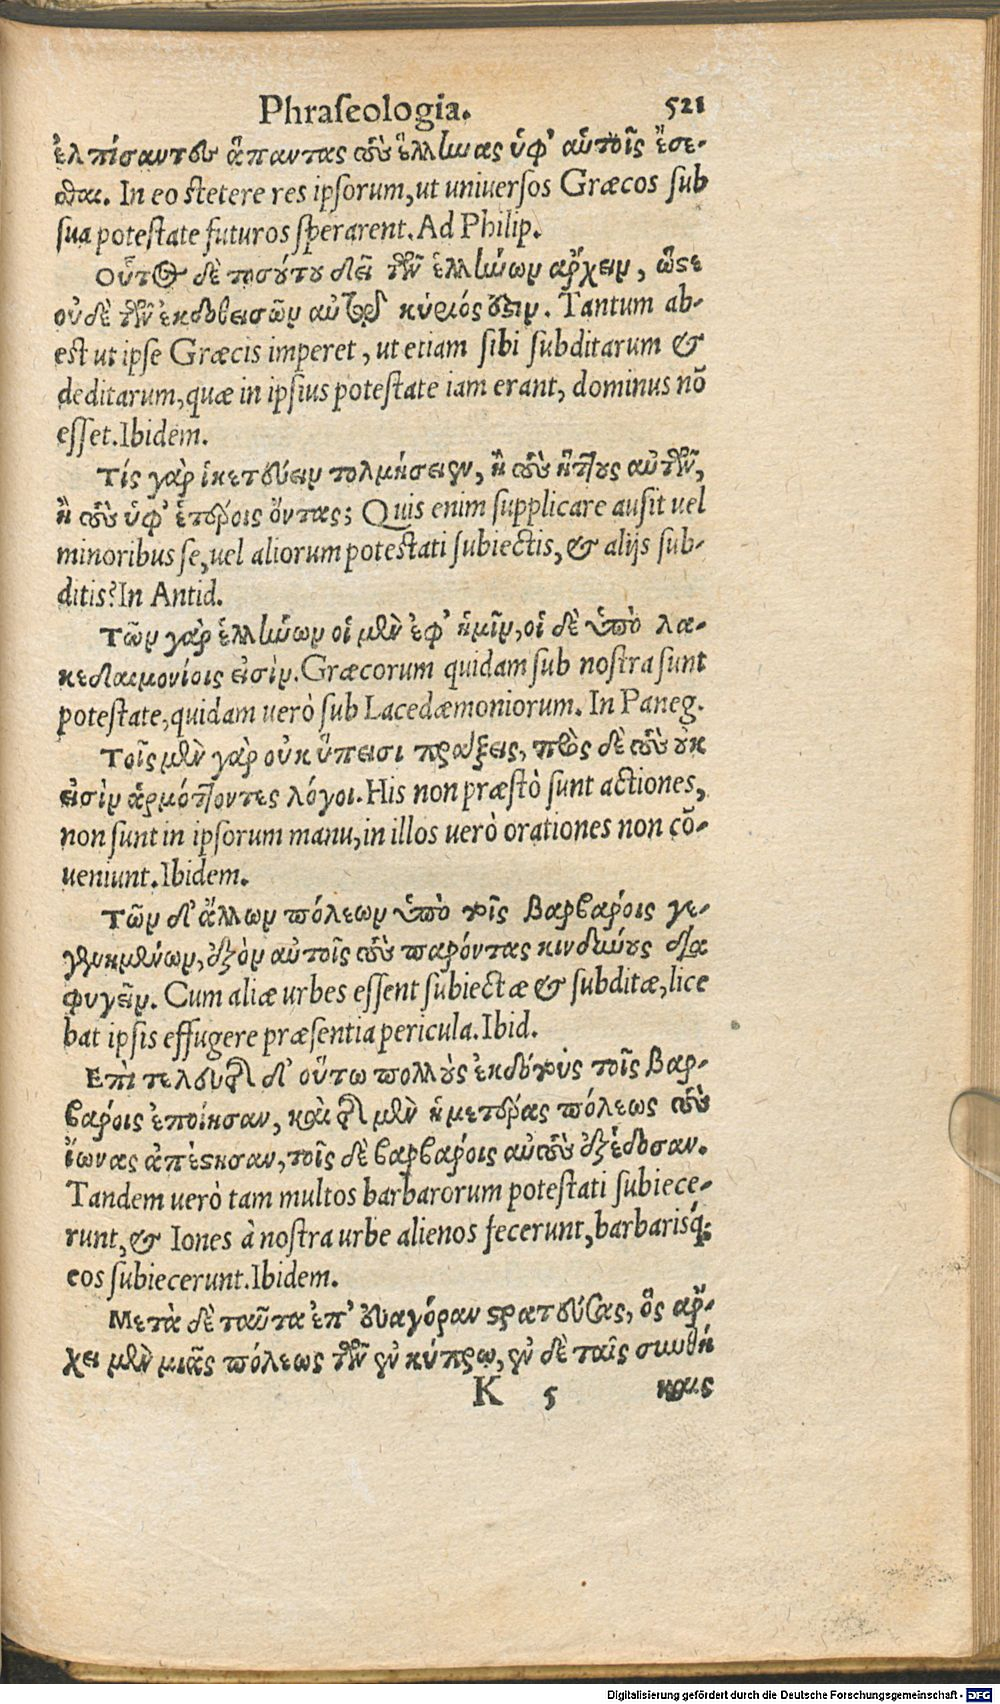 Phraſeologia. 521
ἐλπίσαντες ἅπαντας τοὺς ἕλληνας ὑφ' αὑτοῖς ἔσε-
σθαι. In eo ſtetere res ipſorum, ut uniuerſos Græcos ſub
ſua poteſtate futuros ſperarent. Ad Philip.
Οὗτος δὲ τοσούτου δεῖ τῶν ἑλλήνων ἄρχειν, ὥστε
οὐδὲ τῶν ἐκδοθεισῶν αὐτῷ κύριός ἐστιν. Tantum ab-
eſt ut ipſe Græcis imperet, ut etiam ſibi ſubditarum &
deditarum, quæ in ipſius poteſtate iam erant, dominus nō
eſſet. Ibidem.
Τίς γὰρ ἱκετεύειν τολμήσειεν, ἢ τοὺς ἥττους αὐτῶν,
ἢ τοὺς ὑφ' ἑτέροις ὄντας; Quis enim ſupplicare auſit uel
minoribus ſe, uel aliorum poteſtati ſubiectis, & alijs ſub-
ditis? In Antid.
Τῶν γὰρ ἑλλήνων οἱ μὲν ἐφ' ἡμῖν, οἱ δὲ ὑπὸ λα-
κεδαιμονίοις εἰσὶν. Græcorum quidam ſub noſtra ſunt
poteſtate, quidam uerò ſub Lacedæmoniorum. In Paneg.
Τοῖς μὲν γὰρ οὐκ ὕπεισι πράξεις, πρὸς δὲ τοὺς οὐκ
εἰσὶν ἁρμόττοντες λόγοι. His non præſtò ſunt actiones,
non ſunt in ipſorum manu, in illos uerò orationes non cō-
ueniunt. Ibidem.
Τῶν δ' ἄλλων πόλεων ὑπὸ τοῖς βαρβάροις γε-
γενημένων, ἐξὸν αὐτοῖς τοὺς παρόντας κινδύνους δια
φυγεῖν. Cum aliæ urbes eſſent ſubiectæ & ſubditæ, lice
bat ipſis effugere præſentia pericula. Ibid.
Ἐπὶ τελευτῇ δ' οὕτω πολλοὺς ἐκδότους τοῖς βαρ-
βάροις ἐποίησαν, καὶ τῆς μὲν ἡμετέρας πόλεως τοὺς
ἴωνας ἀπέστησαν, τοῖς δὲ βαρβάροις αὐτοὺς ἐξέδοσαν.
Tandem uerò tam multos barbarorum poteſtati ſubiece-
runt, & Iones à noſtra urbe alienos fecerunt, barbarisq́;
eos ſubiecerunt. Ibidem.
Μετὰ δὲ ταῦτα ἐπ' εὐαγόραν στρατεύσας, ὃς ἄρ-
χει μὲν μιᾶς πόλεως τῶν ἐν κύπρῳ, ἐν δὲ ταῖς συνθή
K 5 καις
Digitalisierung gefördert durch die Deutsche Forschungsgemeinschaft - DFG